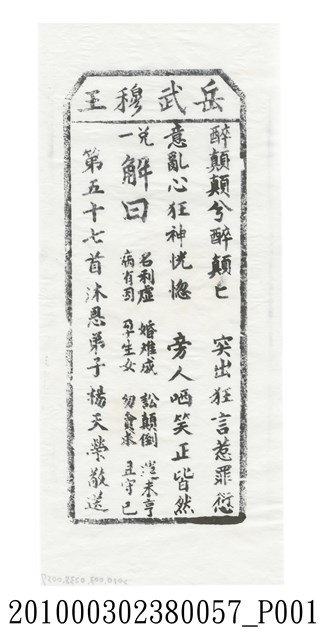 岳武穆王
醉顛顛兮醉顛匕 突出狂言惹罪愆
意亂心狂神恍惚 旁人哂笑正皆然
兌一 解曰 名利虛 婚難成 訟顛倒 運未亨
病有司 孕生女 勿貪求 且守己
第五十七首沐恩弟子楊天榮敬送
201000302380057_P001